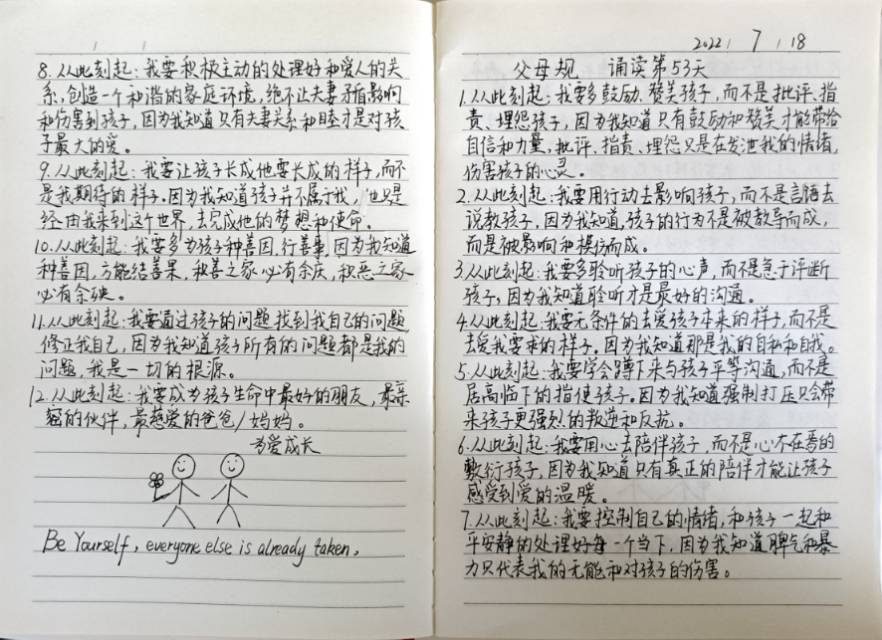 8.从此刻起:我要积极主动的处理好和爱人的关
系,创造一个和谐的家庭环境,绝不让夫妻矛盾影响
和伤害到孩子,因为我知道只有夫妻关系和睦才是对孩
子最大的爱。
9.从此刻起:我要让孩子长成他要长成的样子,而不
是我期待的样子。因为我知道孩子并不属于我,他只是
经由我来到这个世界,去完成他的梦想和使命。
10.从此刻起:我要多为孩子种善因,行善事,因为我知道
种善因,方能结善果,积善之家必有余庆,积恶之家
必有余殃。
11.从此刻起:我要通过孩子的问题找到我自己的问题
修正我自己,因为我知道孩子所有的问题都是我的
问题,我是一切的根源。
12.从此刻起:我要成为孩子生命中最好的朋友,最亲
密的伙伴,最慈爱的爸爸/妈妈。
为爱成长
Be Yourself, everyone else is already taken,
2022 7 18
父母规 诵读第53天
1.从此刻起:我要多鼓励、赞美孩子,而不是批评、指
责、埋怨孩子,因为我知道只有鼓励和赞美才能带给
自信和力量,批评、指责、埋怨只是在发泄我的情绪,
伤害孩子的心灵。
2.从此刻起:我要用行动去影响孩子,而不是言语去
说教孩子,因为我知道,孩子的行为不是被教导而成,
而是被影响和模仿而成。
3.从此刻起:我要多聆听孩子的心声,而不是急于评断
孩子,因为我知道聆听才是最好的沟通。
4.从此刻起:我要无条件的去爱孩子本来的样子,而不是
去爱我要求的样子。因为我知道那是我的自私和自我。
5.从此刻起:我要学会蹲下来与孩子平等沟通,而不是
居高临下的指使孩子。因为我知道强制打压只会带
来孩子更强烈的叛逆和反抗。
6.从此刻起:我要用心去陪伴孩子,而不是心不在焉的
敷衍孩子,因为我知道只有真正的陪伴才能让孩子
感受到爱的温暖。
7.从此刻起:我要控制自己的情绪,和孩子一起和
平安静的处理好每一个当下,因为我知道脾气和暴
力只代表我的无能和对孩子的伤害。